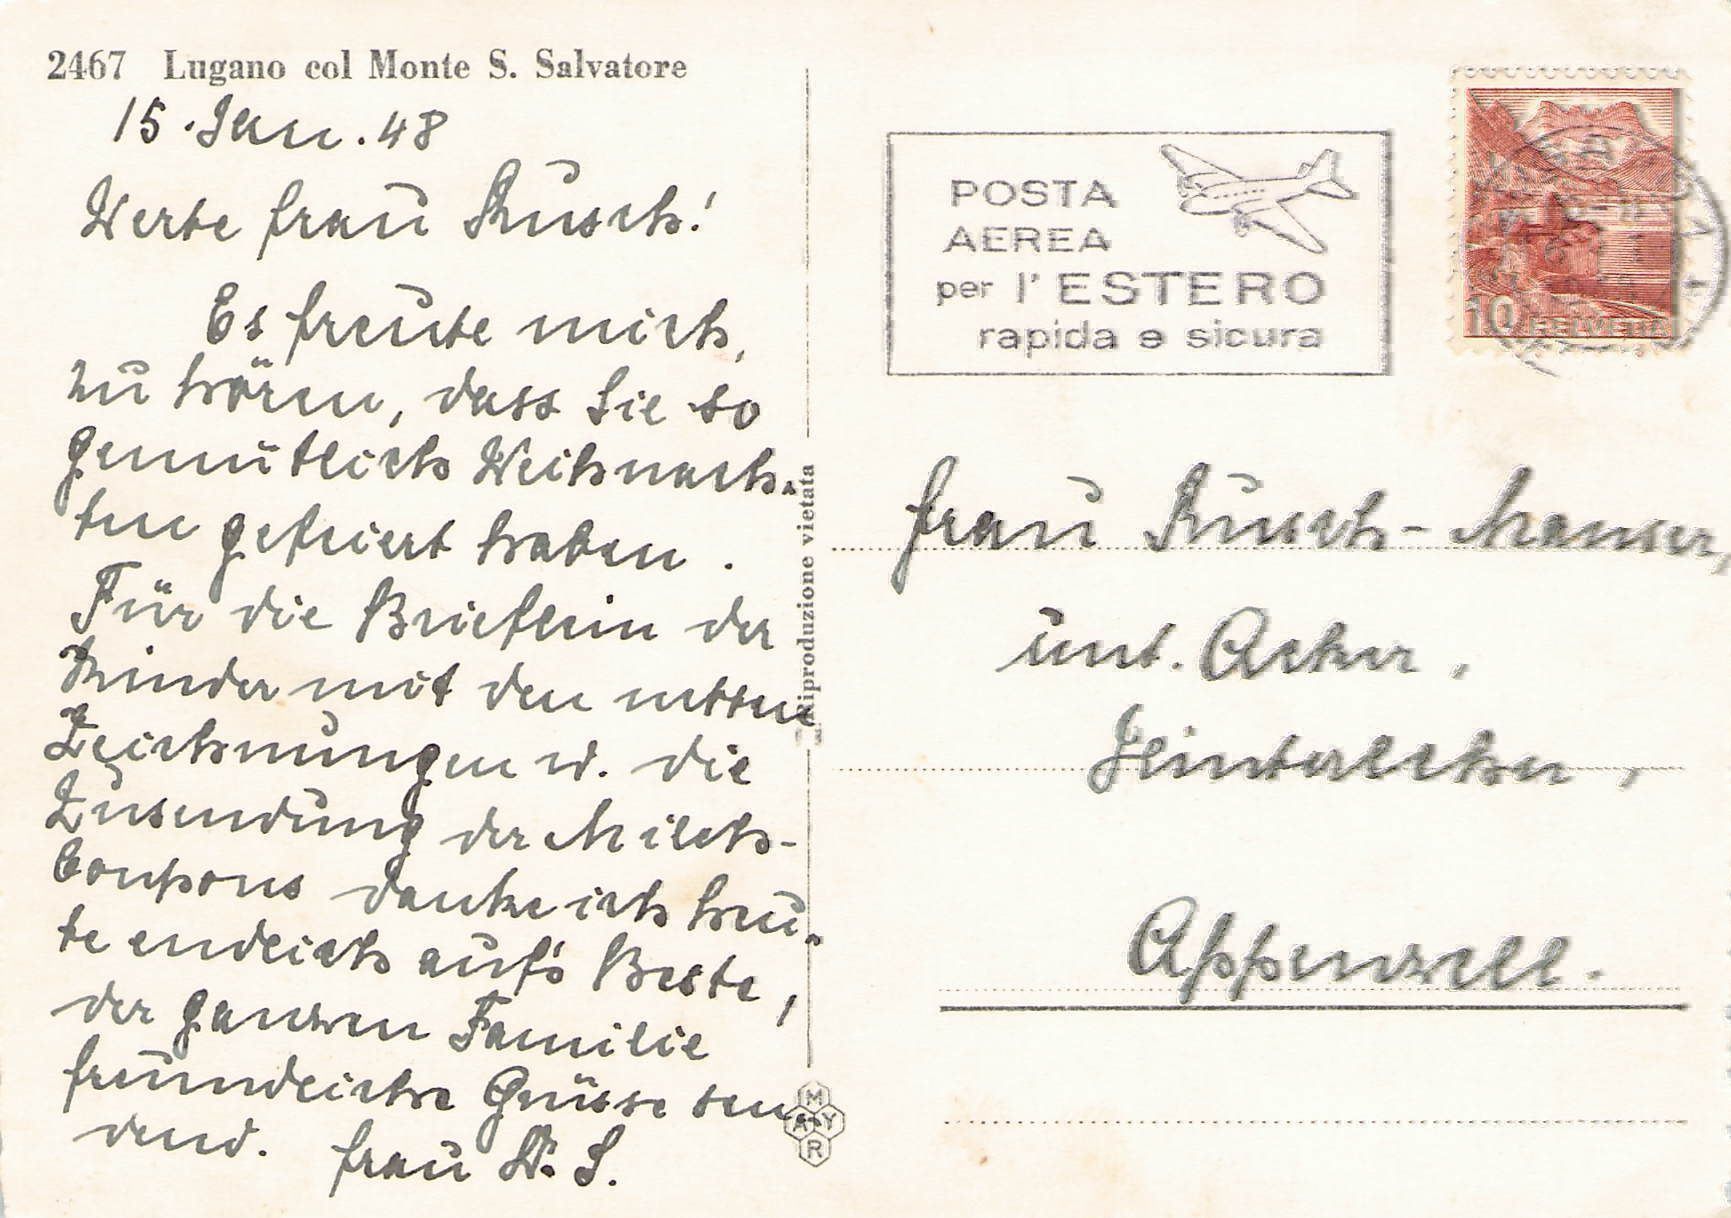 2467 Lugano col Monte S. Salvatore
15. Jan. 48
Werte Frau Rusch!
Es freute mich,
zu hören, dass Sie so
gemütlich Weihnach-
ten gefeiert haben.
Für die Brieflein der
Kinder mit den netten
Zeichnungen u. die
Zusendung der Milch-
Coupons danke ich heu-
te endlich auf's Beste,
der ganzen Familie
freundliche Grüsse sen-
dend. Frau W. S.
Riproduzione vietata
MAYR
POSTA
AEREA
per l'ESTERO
rapida e sicura
10 HELVETIA
Frau Rusch-Manser,
unt. Acker,
Appenzell.